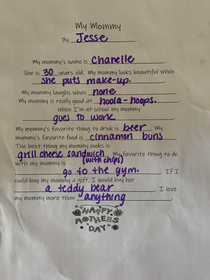 My Mommy
By Jesse
My mommy's name is Chanelle
She is 30 years old. My mommy looks beautiful when
she puts make-up.
My mommy laughs when none
My mommy is really good at hoola-hoops.
When I'm at school my mommy
goes to work
My mommy's favorite thing to drink is beer. My
mommy's favorite food is cinnamon buns
The best thing my mommy cooks is
grill cheese sandwich. My favorite thing to do
with my mommy is (with chips)
go to the gym. If I
could buy my mommy a gift, I would buy her
a teddy bear I love
my mommy more than anything
HAPPY
MOTHERS
DAY